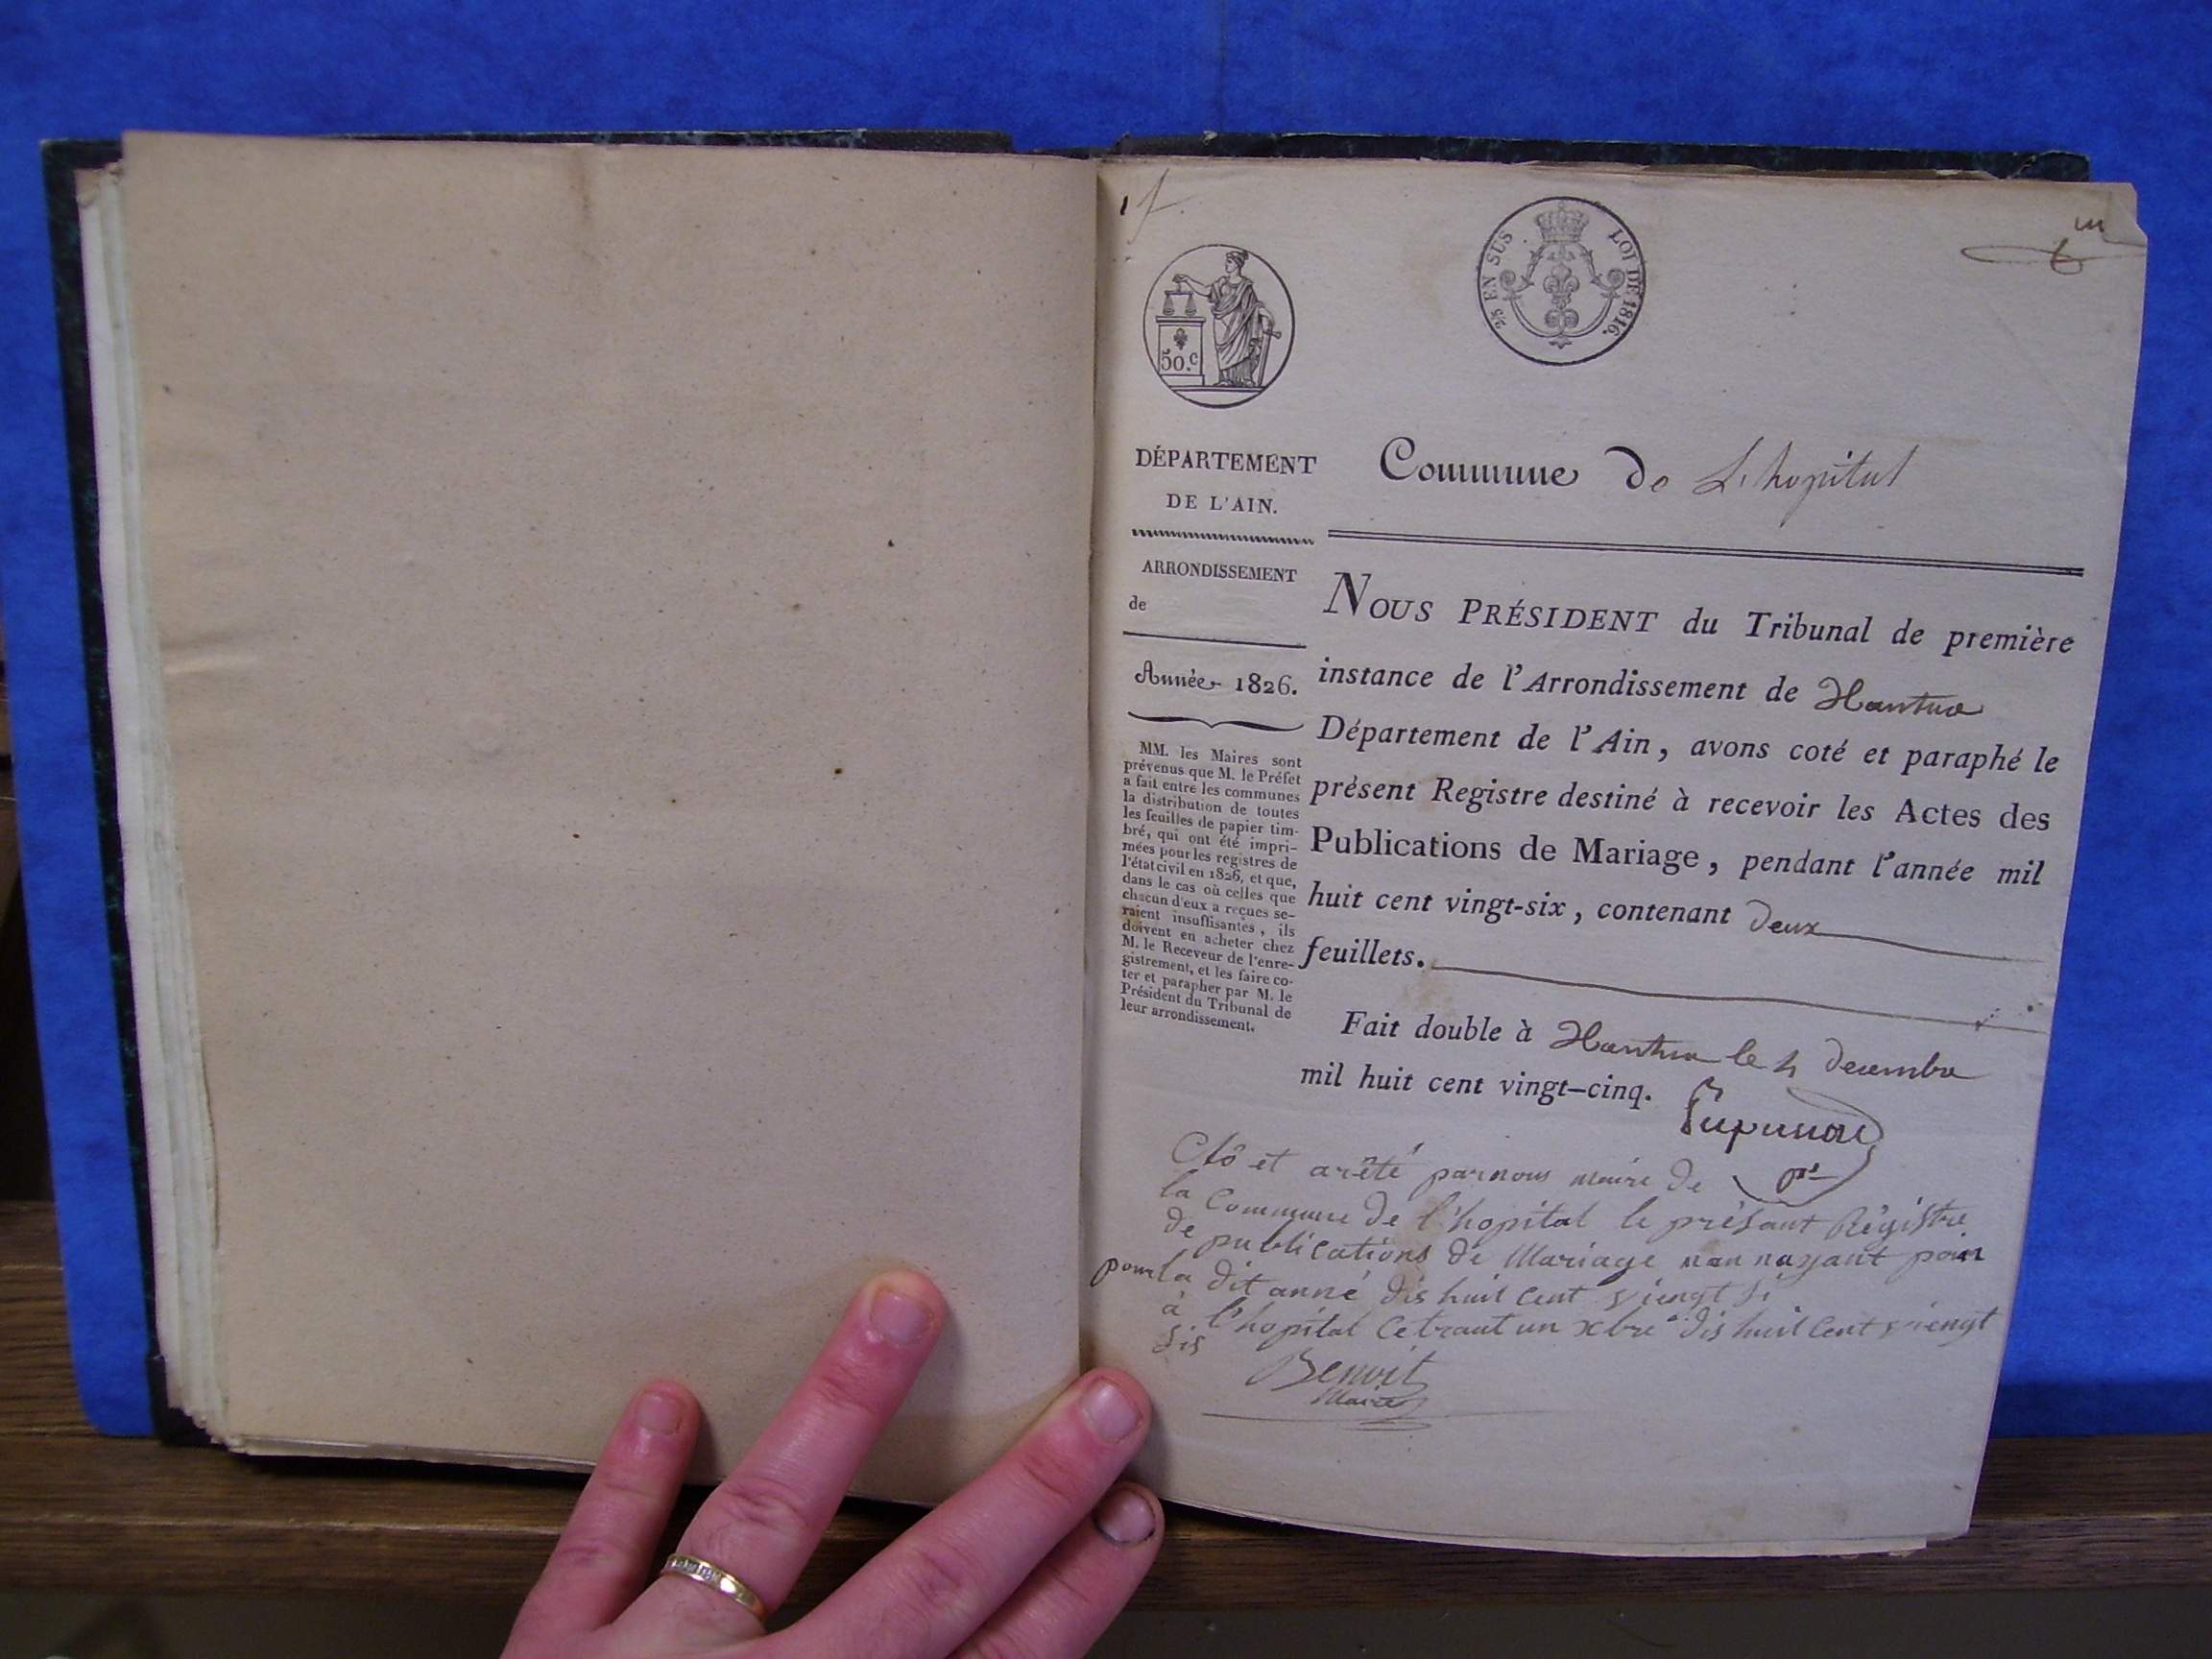 1
25 EN SUS LOI DE 1816.
50.c
DÉPARTEMENT
DE L'AIN.
Commune de L'hopital
ARRONDISSEMENT
de
Année 1826.
MM. les Maires sont
prévenus que M. le Préfet
a fait entre les communes
la distribution de toutes
les feuilles de papier tim-
bré, qui ont été impri-
mées pour les registres de
l'état civil en 1826, et que,
dans le cas où celles que
chacun d'eux a reçues se-
raient insuffisantes, ils
doivent en acheter chez
M. le Receveur de l'enre-
gistrement, et les faire co-
ter et parapher par M. le
Président du Tribunal de
leur arrondissement.
NOUS PRÉSIDENT du Tribunal de première
instance de l'Arrondissement de Nantua
Département de l'Ain, avons coté et paraphé le
présent Registre destiné à recevoir les Actes des
Publications de Mariage, pendant l'année mil
huit cent vingt-six, contenant deux
feuillets.
Fait double à Nantua le 4 decembre
mil huit cent vingt-cinq.
Clô et arêté par nous maire de
la Commune de l'hopital le présant Régistre
de publications de Mariage nan nayant poin
pour la dit anné dis huit cent viengt si
à l'hopital ce traut un xbre dis huit cent viengt
sis
Benoit
Maire